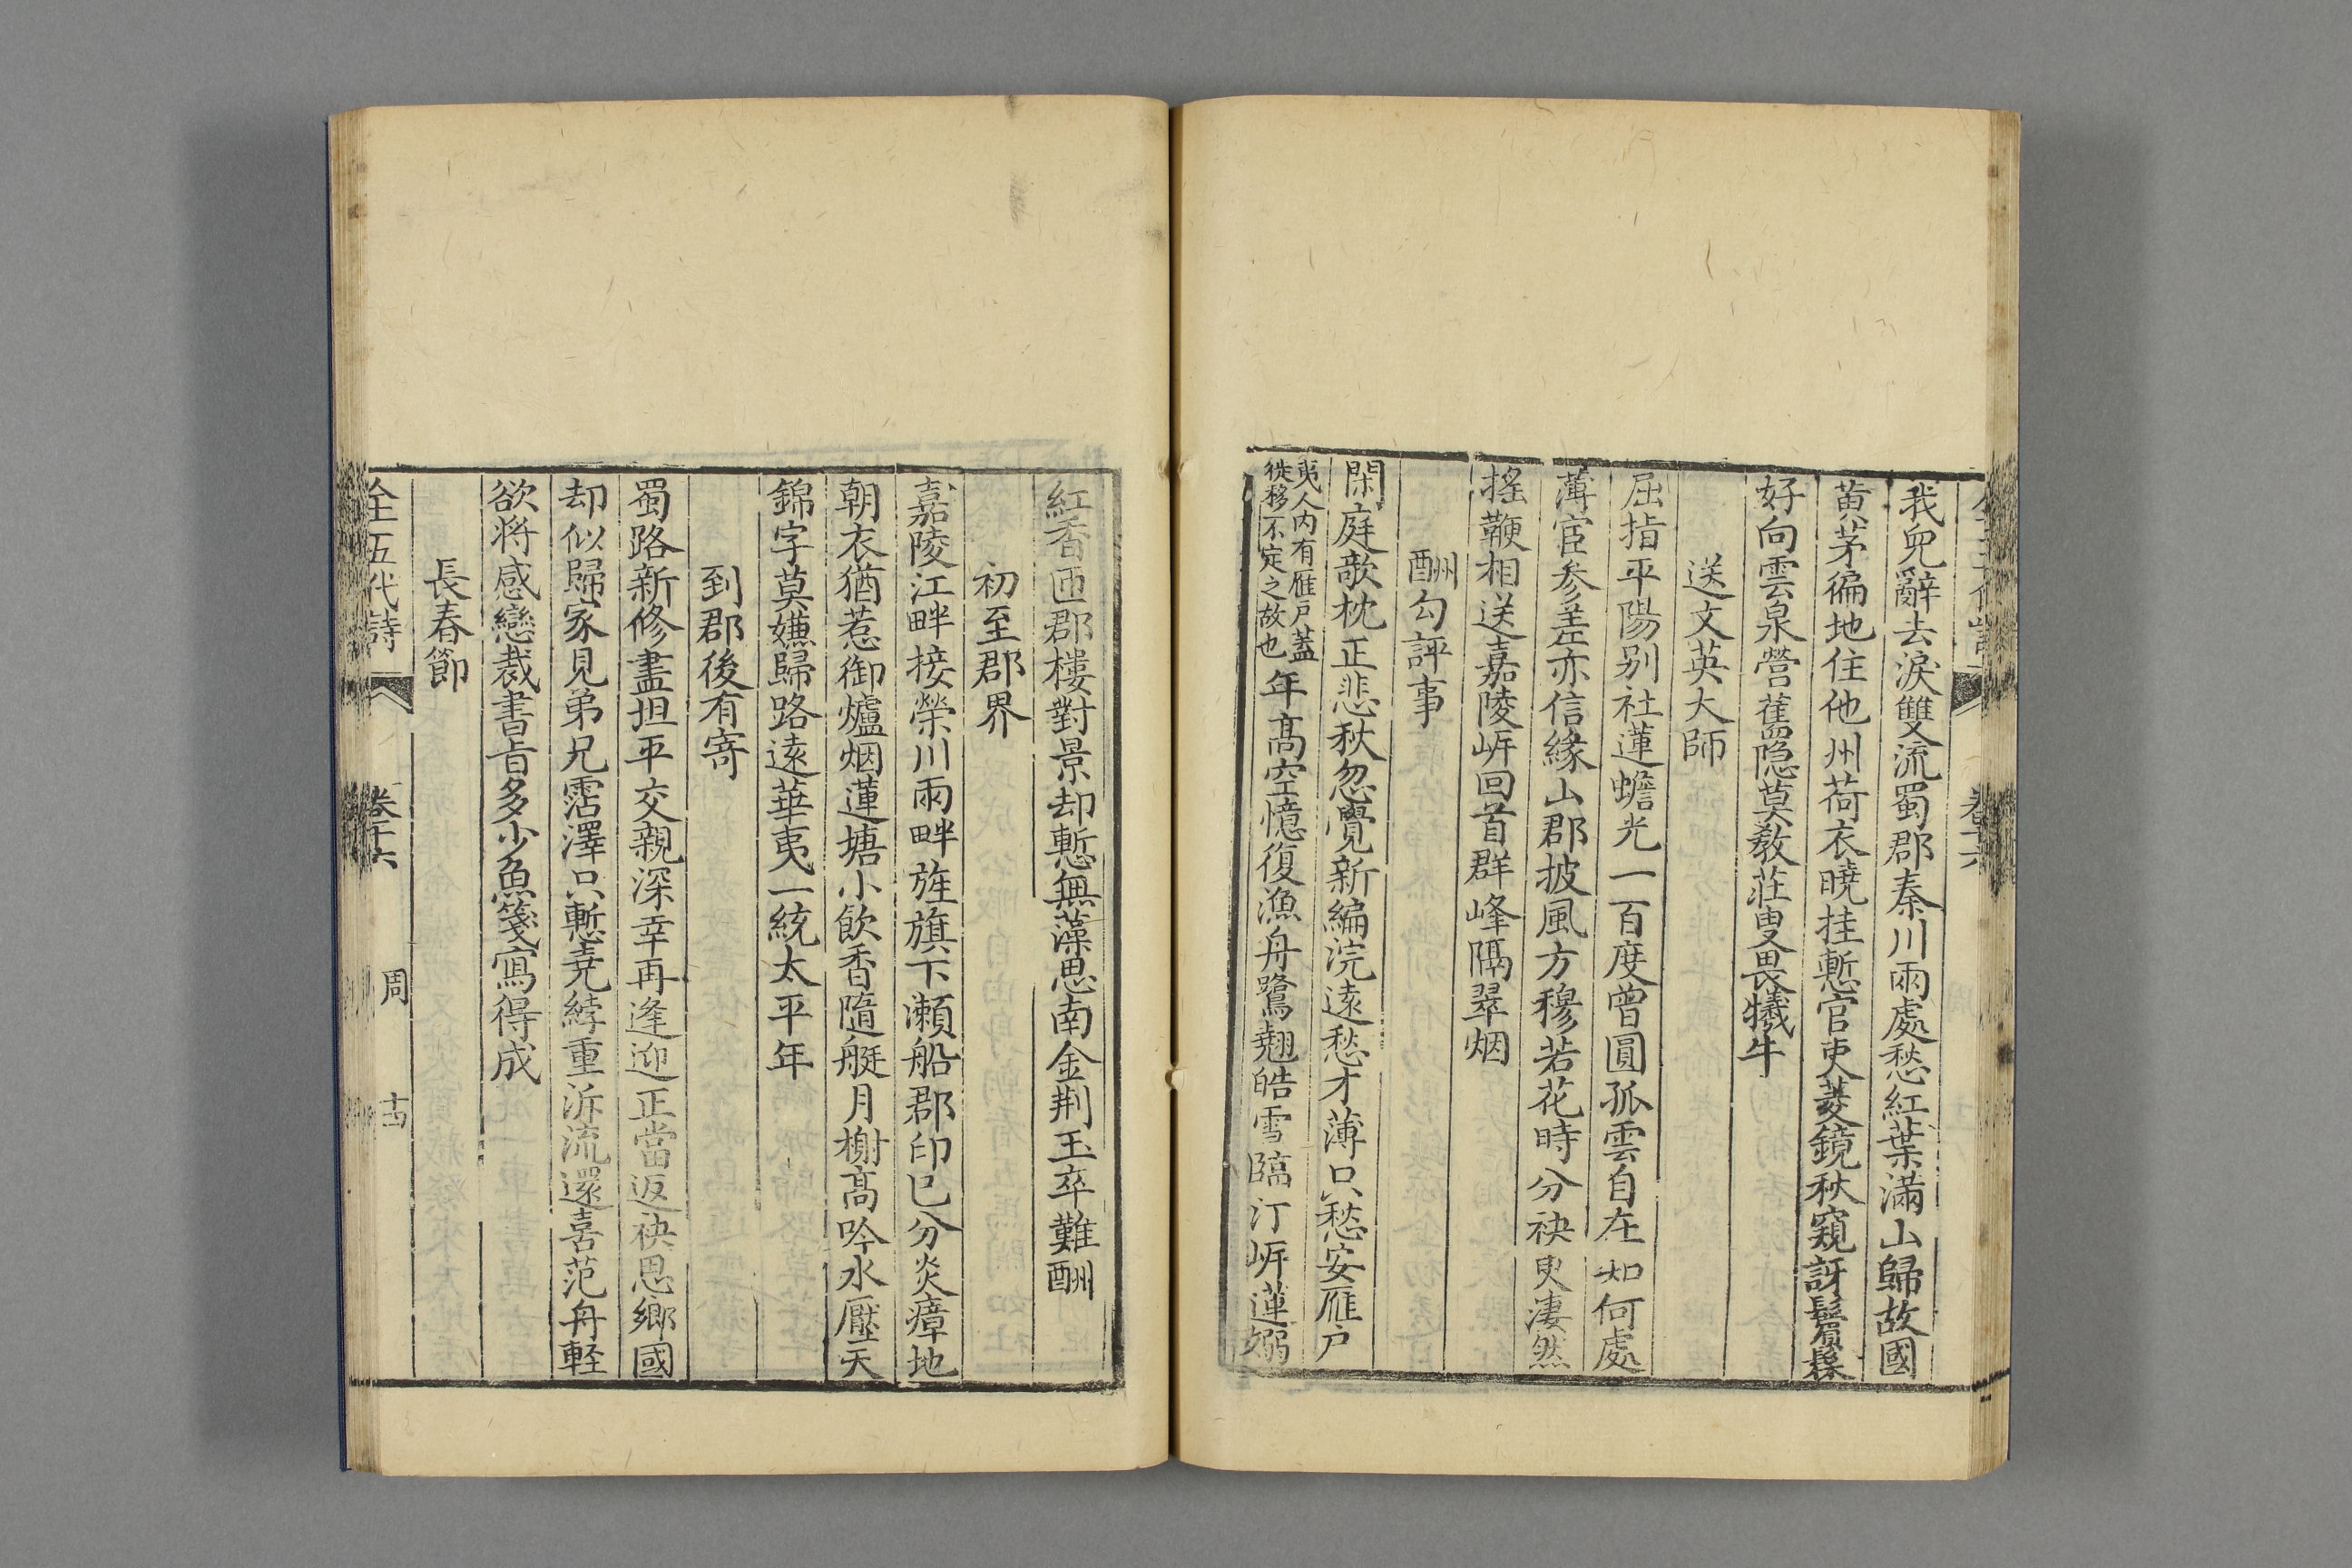 我兒辭去淚雙流蜀郡秦川兩處愁紅葉滿山歸故國
黃茅徧地住他州荷衣曉挂慙官吏菱鏡秋窺訝鬢髹
好向雲泉營舊隐莫教莊叟畏犧牛
送文英大師
屈指平陽别社蓮蟾光一百度曾圓孤雲自在知何處
薄宦參差亦信緣山郡披風方穆若花時分袂更淒然
搖鞭相送嘉陵岍回首群峰隔翠烟
酬勾評事
閑庭欹枕正悲秋忽覺新編浣遠愁才薄只愁安雁户
夷人内有雁户蓋
徙移不定之故也
年高空憶復漁舟鷺翹皓雪臨汀岍蓮裊
紅香匝郡樓對景却慙無藻思南金荆玉卒難酬
初至郡界
嘉陵江畔接榮川兩畔旌旗下瀨船郡印已分炎瘴地
朝衣猶惹御爐烟蓮塘小飲香隨艇月榭高吟水壓天
錦字莫嫌歸路遠華夷一統太平年
到郡後有寄
蜀路新修盡坦平交親深幸再逢迎正當返袂思鄉國
却似歸家見弟兄霑澤只慙堯綍重泝流還喜范舟輕
欲將感戀裁書旨多少魚箋寫得成
長春節
全五代詩
卷十六
周
十四